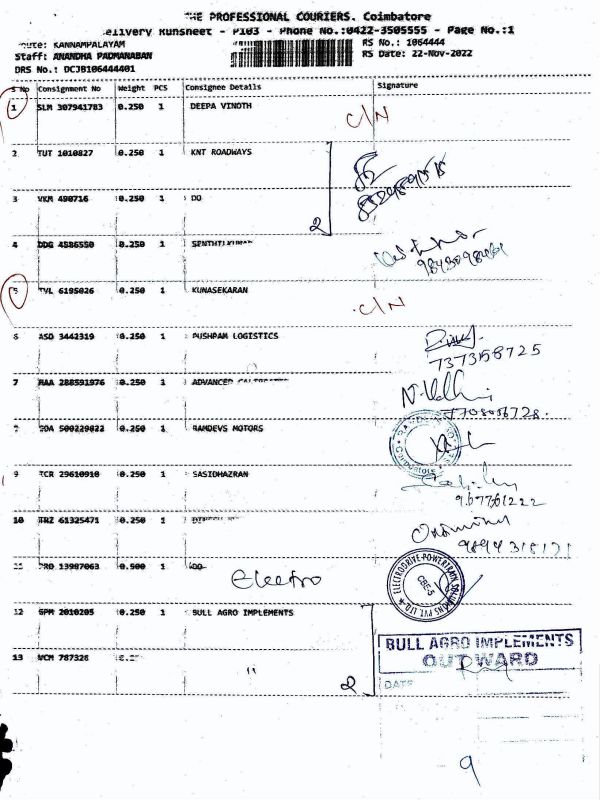 THE PROFESSIONAL COURIERS. Coimbatore
Delivery Runsheet - P103 - Phone No.:0422-3505555 - Page No.:1
Route: KANNAMPALAYAM
RS No.: 1064444
Staff: ANANDHA PADMANABAN
RS Date: 22-Nov-2022
DRS No.: DCJB106444401
S No Consignment No Weight PCS Consignee Details Signature
1 SLM 307941783 0.250 1 DEEPA VINOTH C/N
2 TUT 1010827 0.250 1 KNT ROADWAYS
3 VKM 490716 0.250 1 DO 2
4 DDG 4586550 0.250 1 SENTHILKUMAR
5 TVL 6195026 0.250 1 KUNASEKARAN C/N
6 ASD 3442319 0.250 1 PUSHPAM LOGISTICS
7373158725
7 MAA 288591976 0.250 1 ADVANCED
500229822 0.250 1 RAMDEVS MOTORS
9 TCR 29610910 0.250 1 SASIDHAZRAN
967761222
10 TRZ 61325471 0.250 1
11 PRD 13987063 0.500 1 DO
Electro
ELECTRODRIVE POWERTRAIN SOLUTIONS PVT. LTD.
CBE-5
12 SPM 2010205 0.250 1 BULL AGRO IMPLEMENTS
BULL AGRO IMPLEMENTS
OUTWARD
13 VCM 787328 11 2
DATE
9